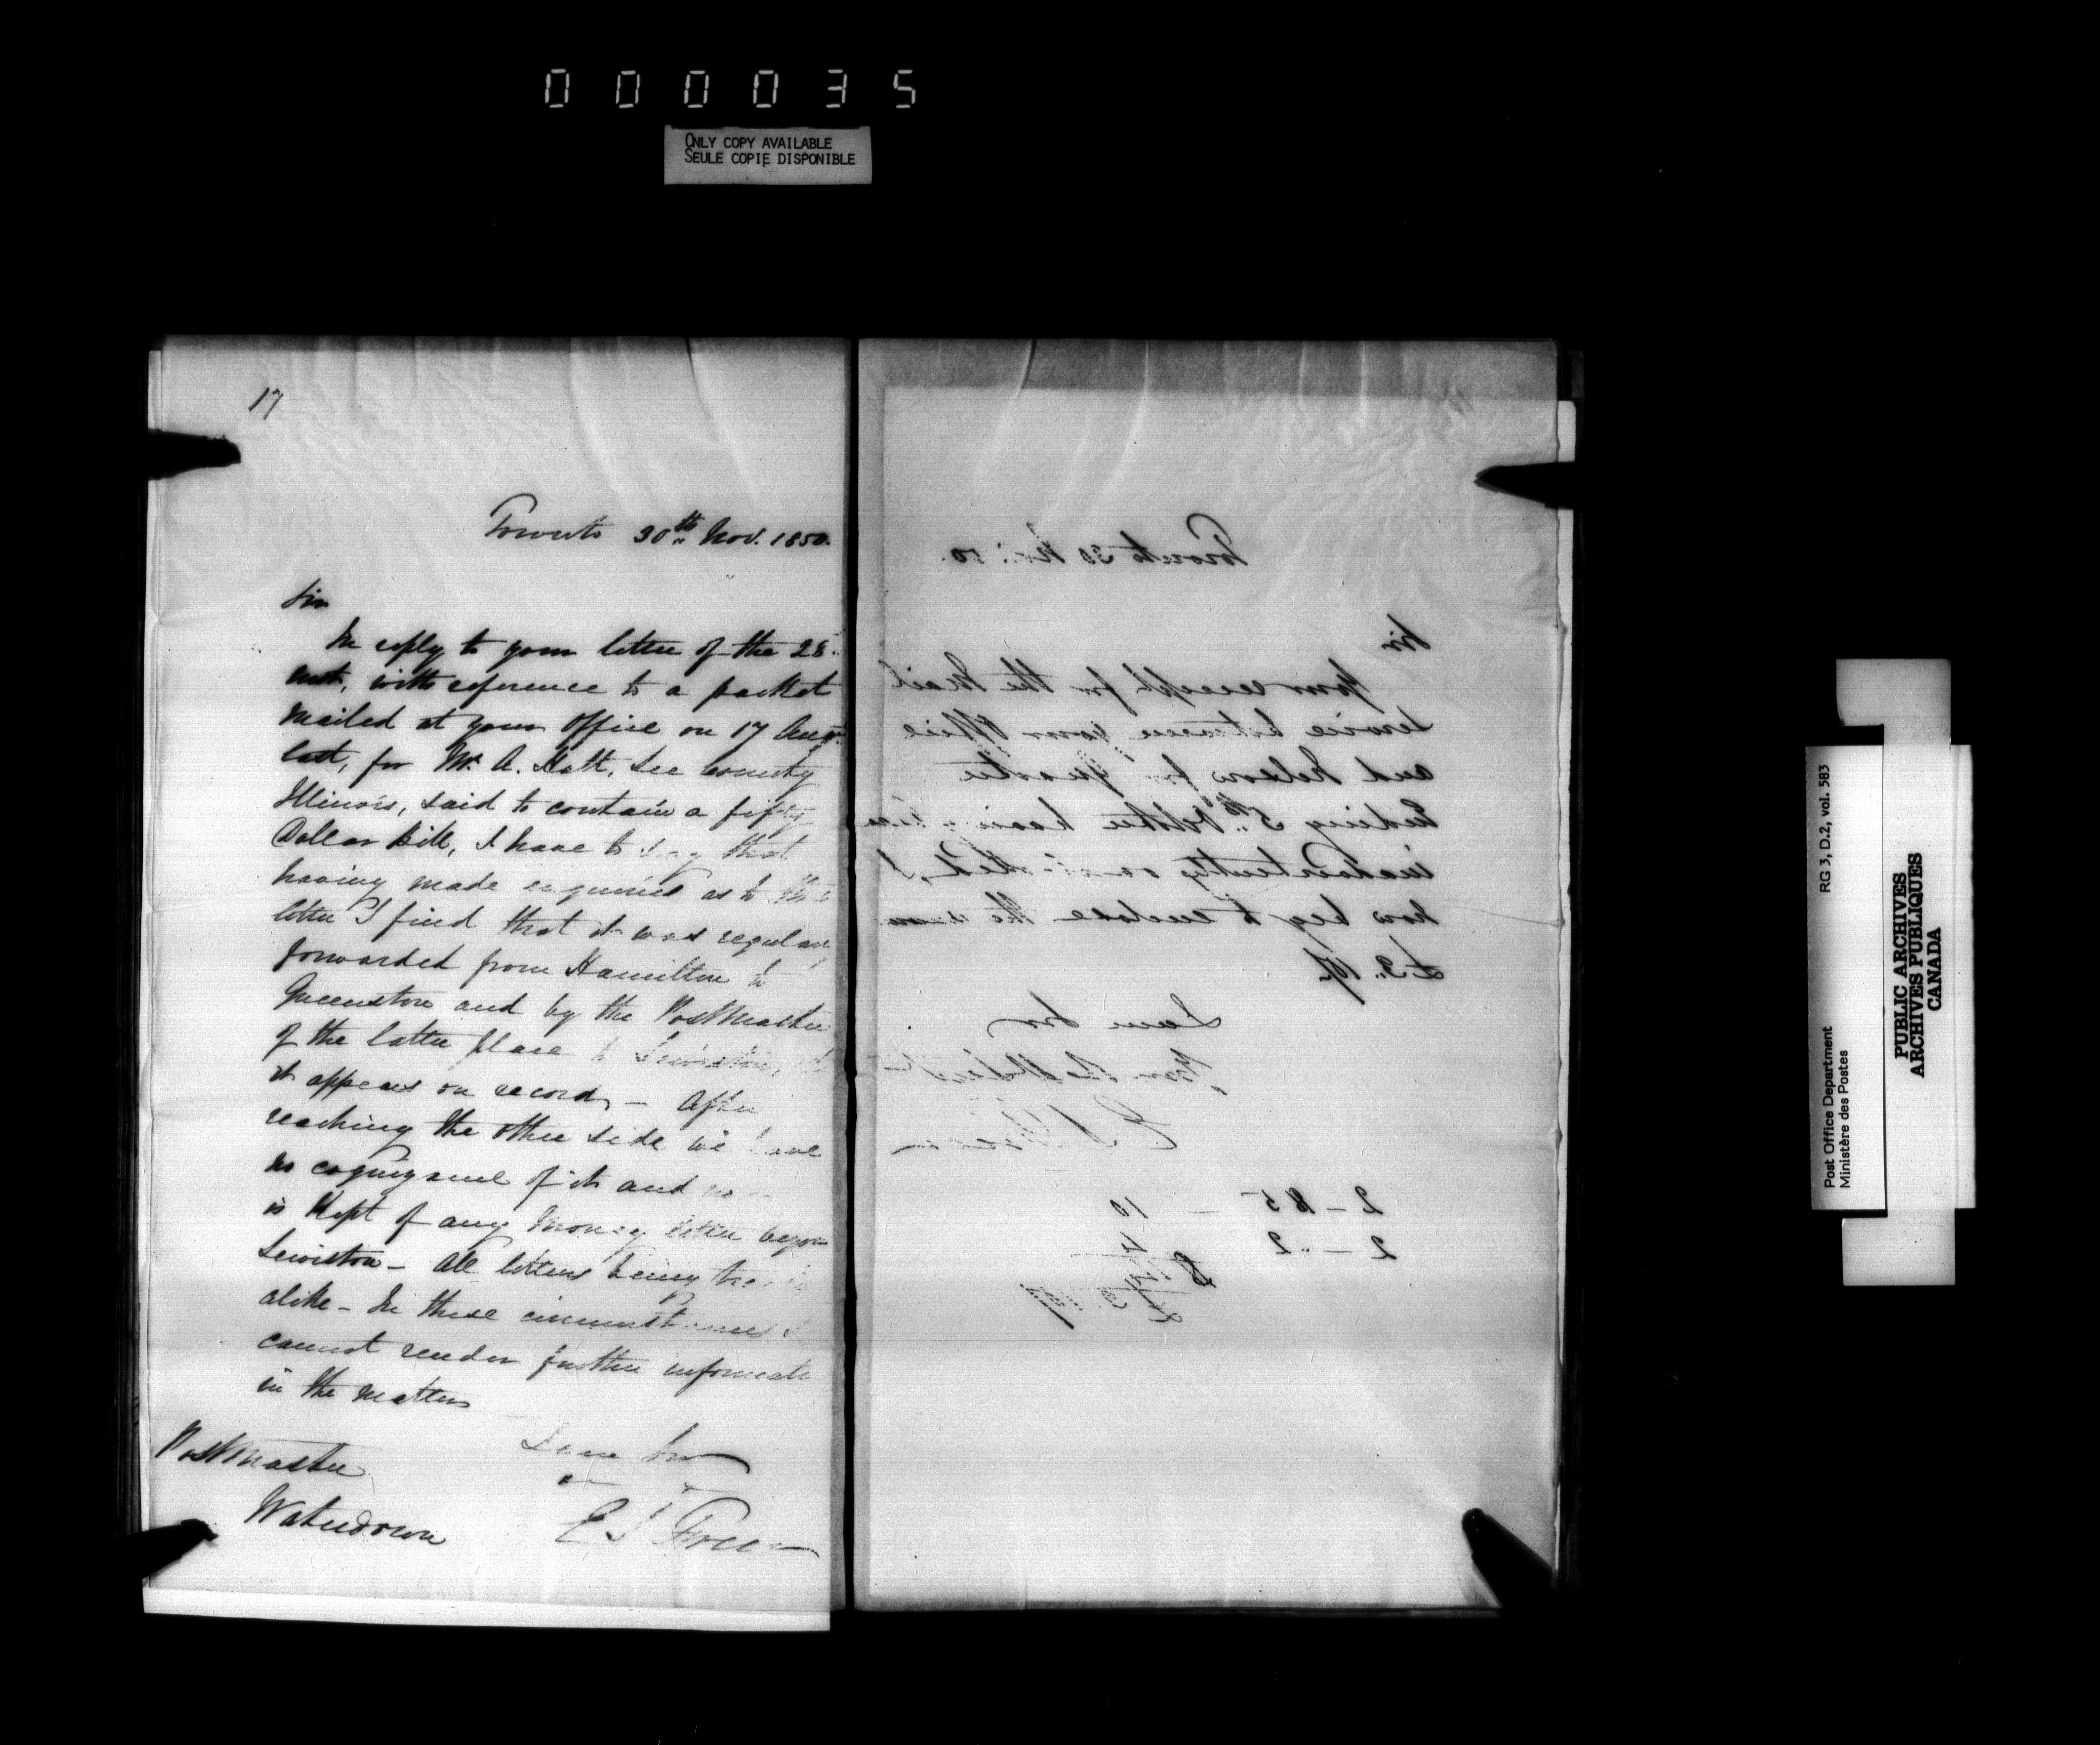 000035
ONLY COPY AVAILABLE
SEULE COPIE DISPONIBLE
17
Toronto 30th Nov. 1850.
Sir
In reply to your letter of the 28
inst, with reference to a packet
mailed at your office on 17 Augt
last, for Mr. A. Hatt, Lee County
Illinois, said to contain a fifty
Dollar bill, I have to say that
having made enquiries as to this
letter I find that it was regularly
forwarded from Hamilton to
Queenston and by the Postmaster
of the latter place to Lewiston,
it appears on record, - After
reaching the other side we have
no cognizance of it and no
is kept of any money letter beyon
Lewiston - All letters being
alike - In these circumstances I
cannot render further informati
in the matter
I am Sir
Postmaster
Waterdown
E S Freer
Toronto 30 Nov: 50.
Sir
Your receipt for the Mail
Service between your Office
and Nelson for Quarter
Ending 5th October having been
inadvertently omitted, I
now beg to enclose the sum
I am Sir
E S Freer
Post Office Department
Ministère des Postes
RG 3, D.2, vol. 583
PUBLIC ARCHIVES
ARCHIVES PUBLIQUES
CANADA